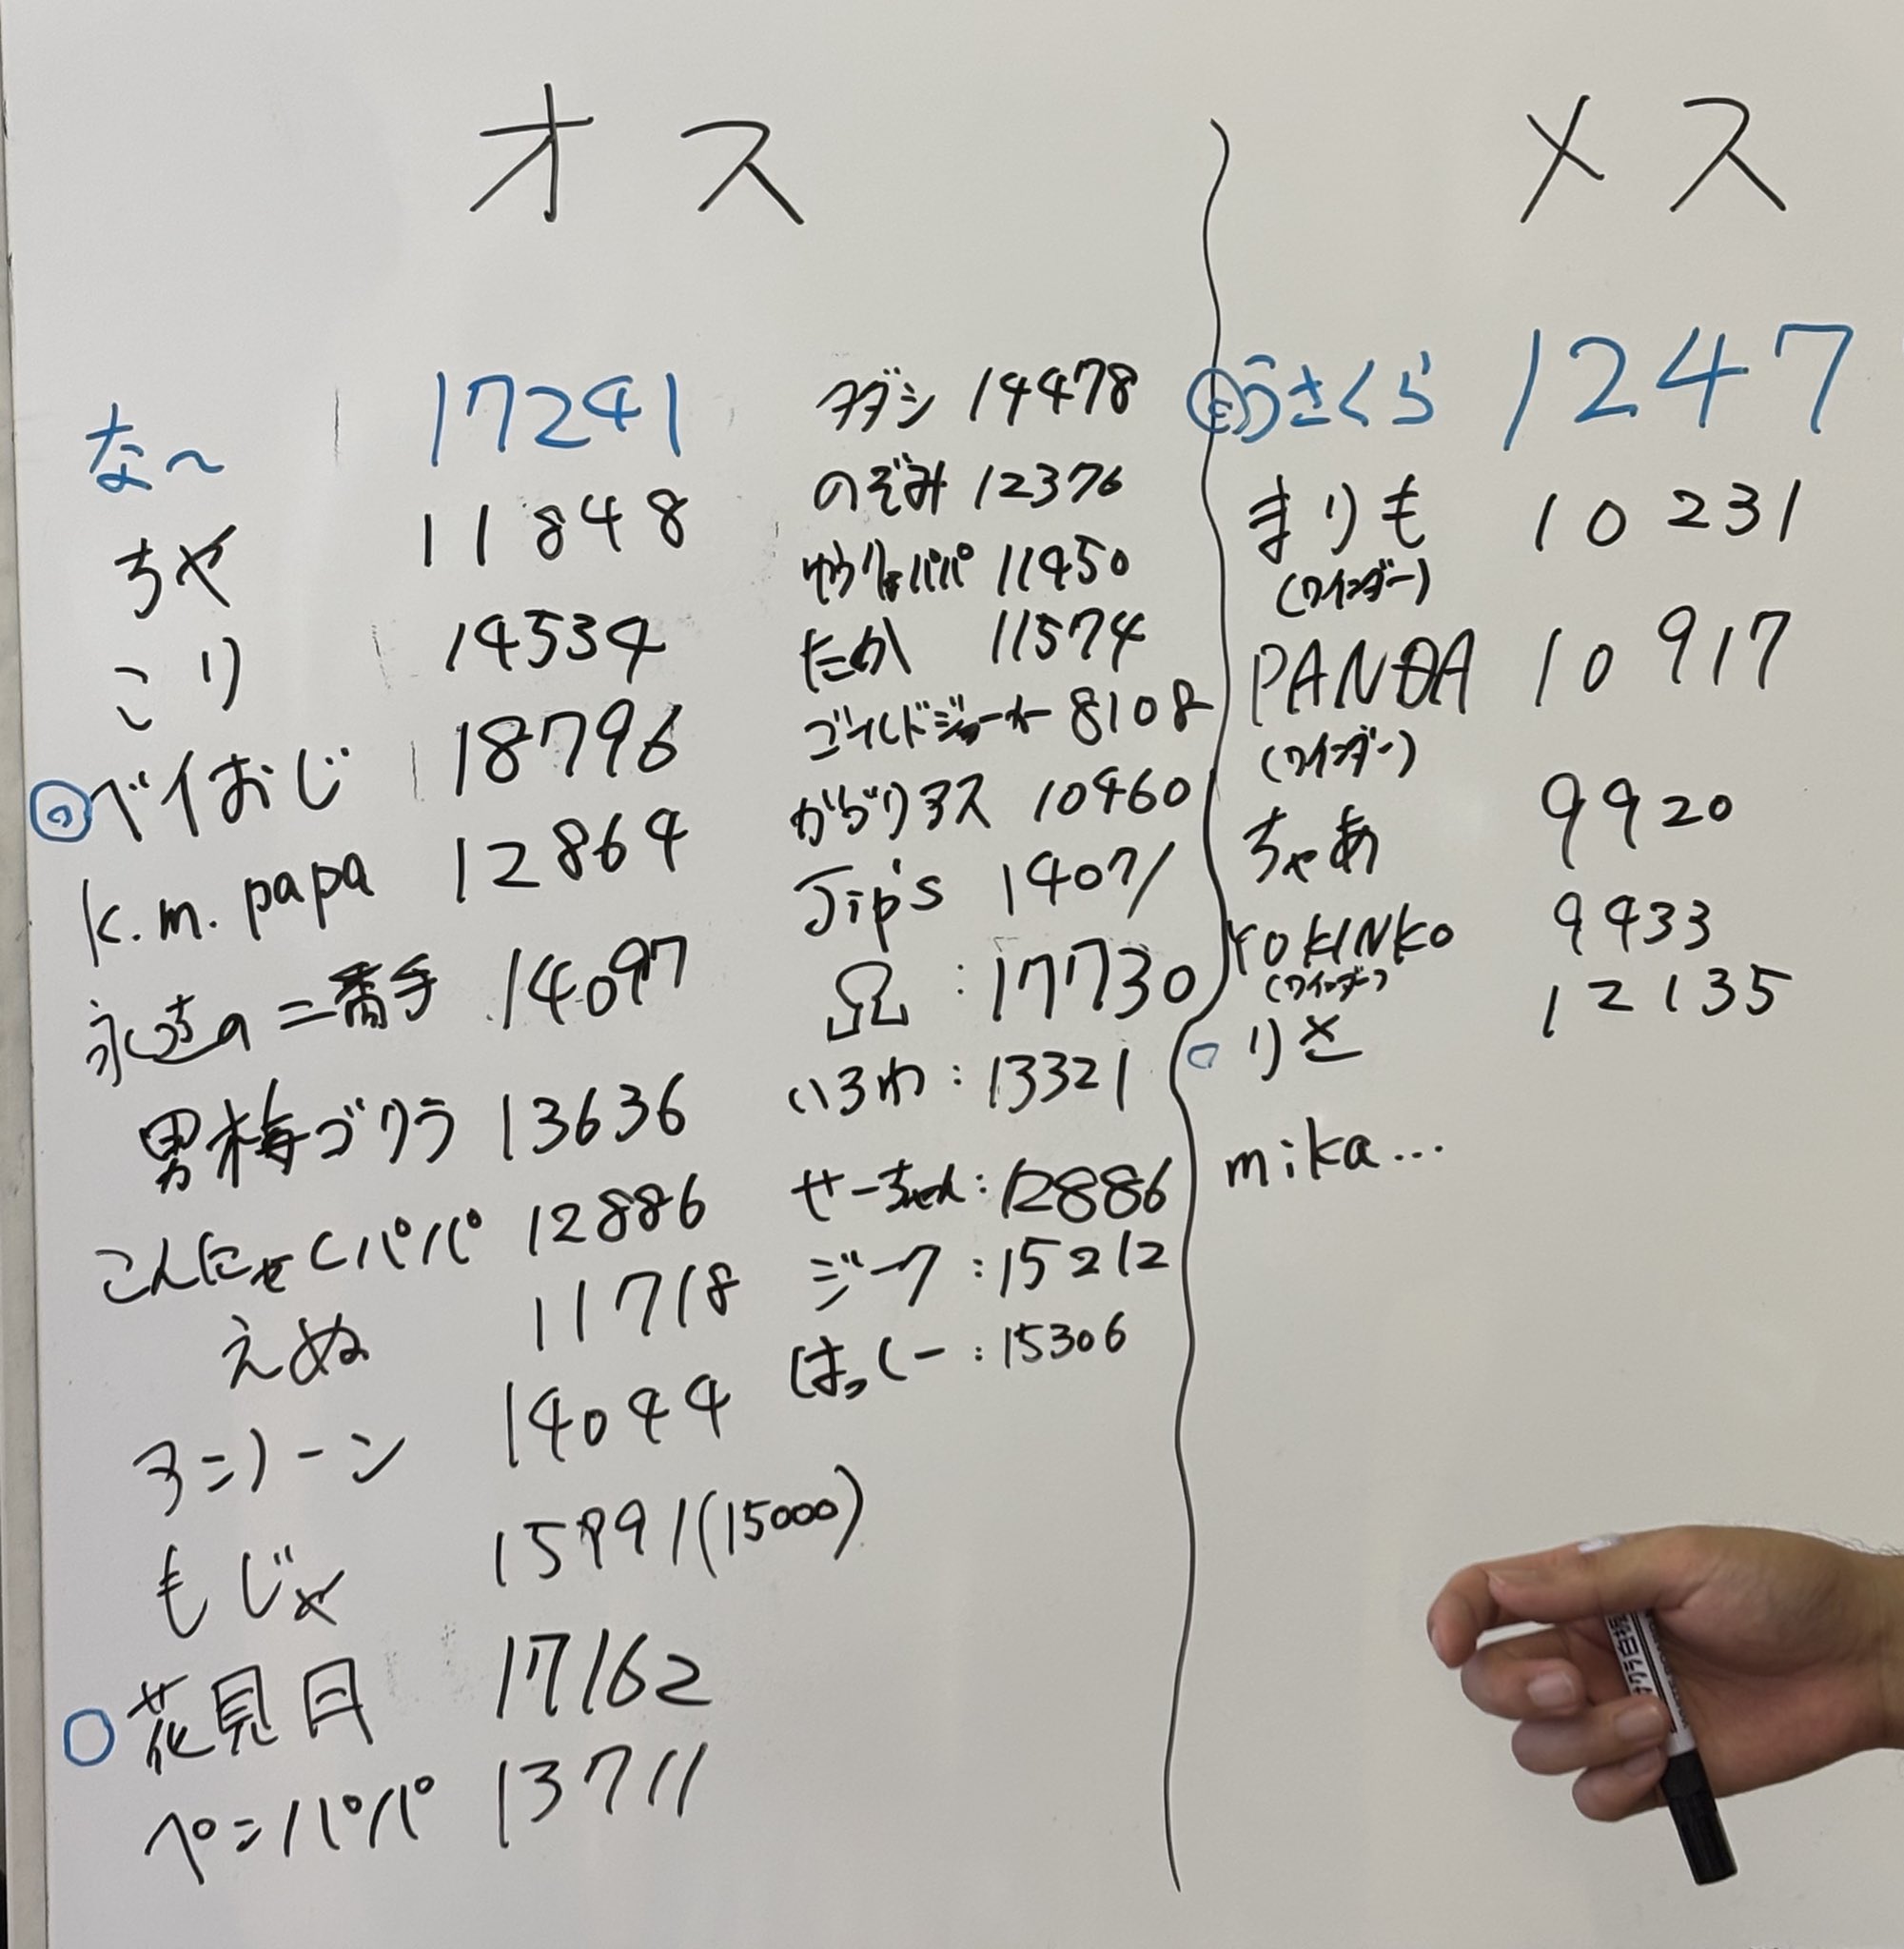 オス
な〜 17241
ちや 11848
こり 14534
ベイおじ 18796
k.m. papa 12864
永遠の二番手 14097
男梅ゴリラ 13636
こんにゃくパパ 12886
えぬ 11718
ヲニソーン 14044
もじゃ 15991(15000)
花見月 17162
ペンパパ 13711
タダシ 14478
のぞみ 12376
パパ 11450
たか 11574
ゴールドジョーカー 8108
がらりアス 10460
Jip's 14071
: 17730
いろわ : 13321
せーちゃん : 12886
ジーク : 15212
はっくー : 15306
メス
うさくら 1247
まりも 10231
(ワインダー)
PANDA 10917
(ワインダー)
ちゃあ 9920
YOKINKO 9433
(ワインダー)
りさ 12135
mika...